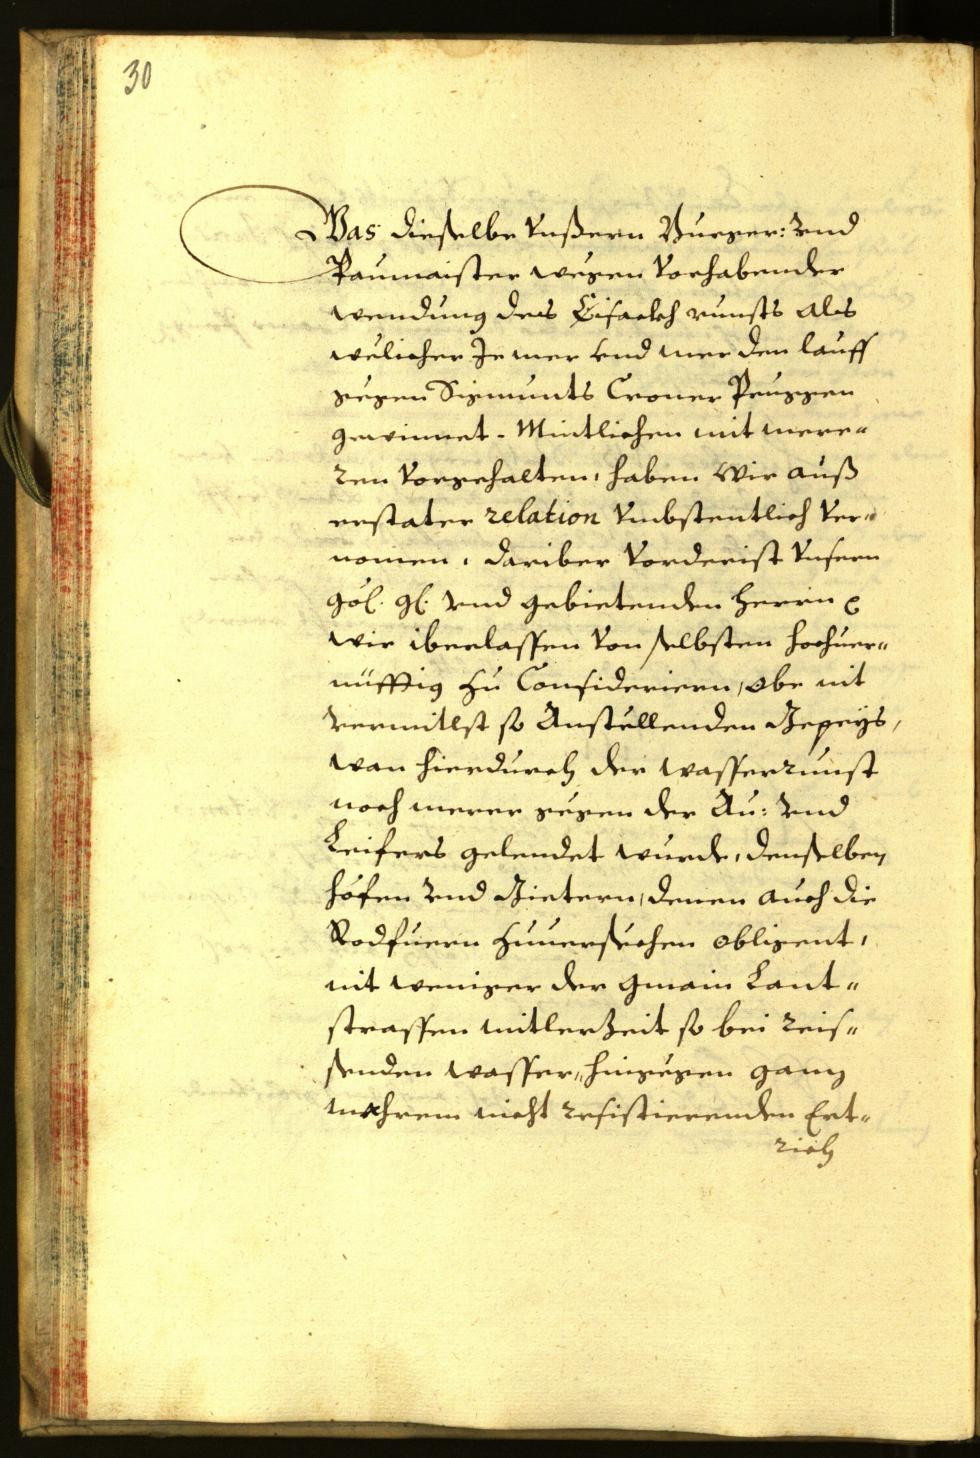 30
Was dieselbe Vnßern Burger: vnd
Paumaister wegen vorhabender
wendung des Eisackh runsts als
welicher Je mer vnd mer den lauff
gegen Sigmunts Croner Pruggen
gewinnet. Mintlichen mit mere„
ren vorgehalten, haben wir auß
erstater relation vmbstentlich ver„
nomen, dariber vorderist vnsern
gdl. gl. vnd gebietenden herrn
wir iberlassen von selbsten hochuer„
nüfftig zu Consideriern, obe nit
vermitlst so Anstellenden Gepeÿs,
wan hierdurch der wasserrunst
noch merer gegen der Au: vnd
Leifers gelendet wurde, denselben
höfen vnd Gietern, denen auch die
Rodfuern zuuersechen obligent,
nit weniger der gmain Lant„
strassen mitlerzeit so bei reis„
senden wasser, hingegen ganz
mehrem nicht resistierenden Ert„
rich